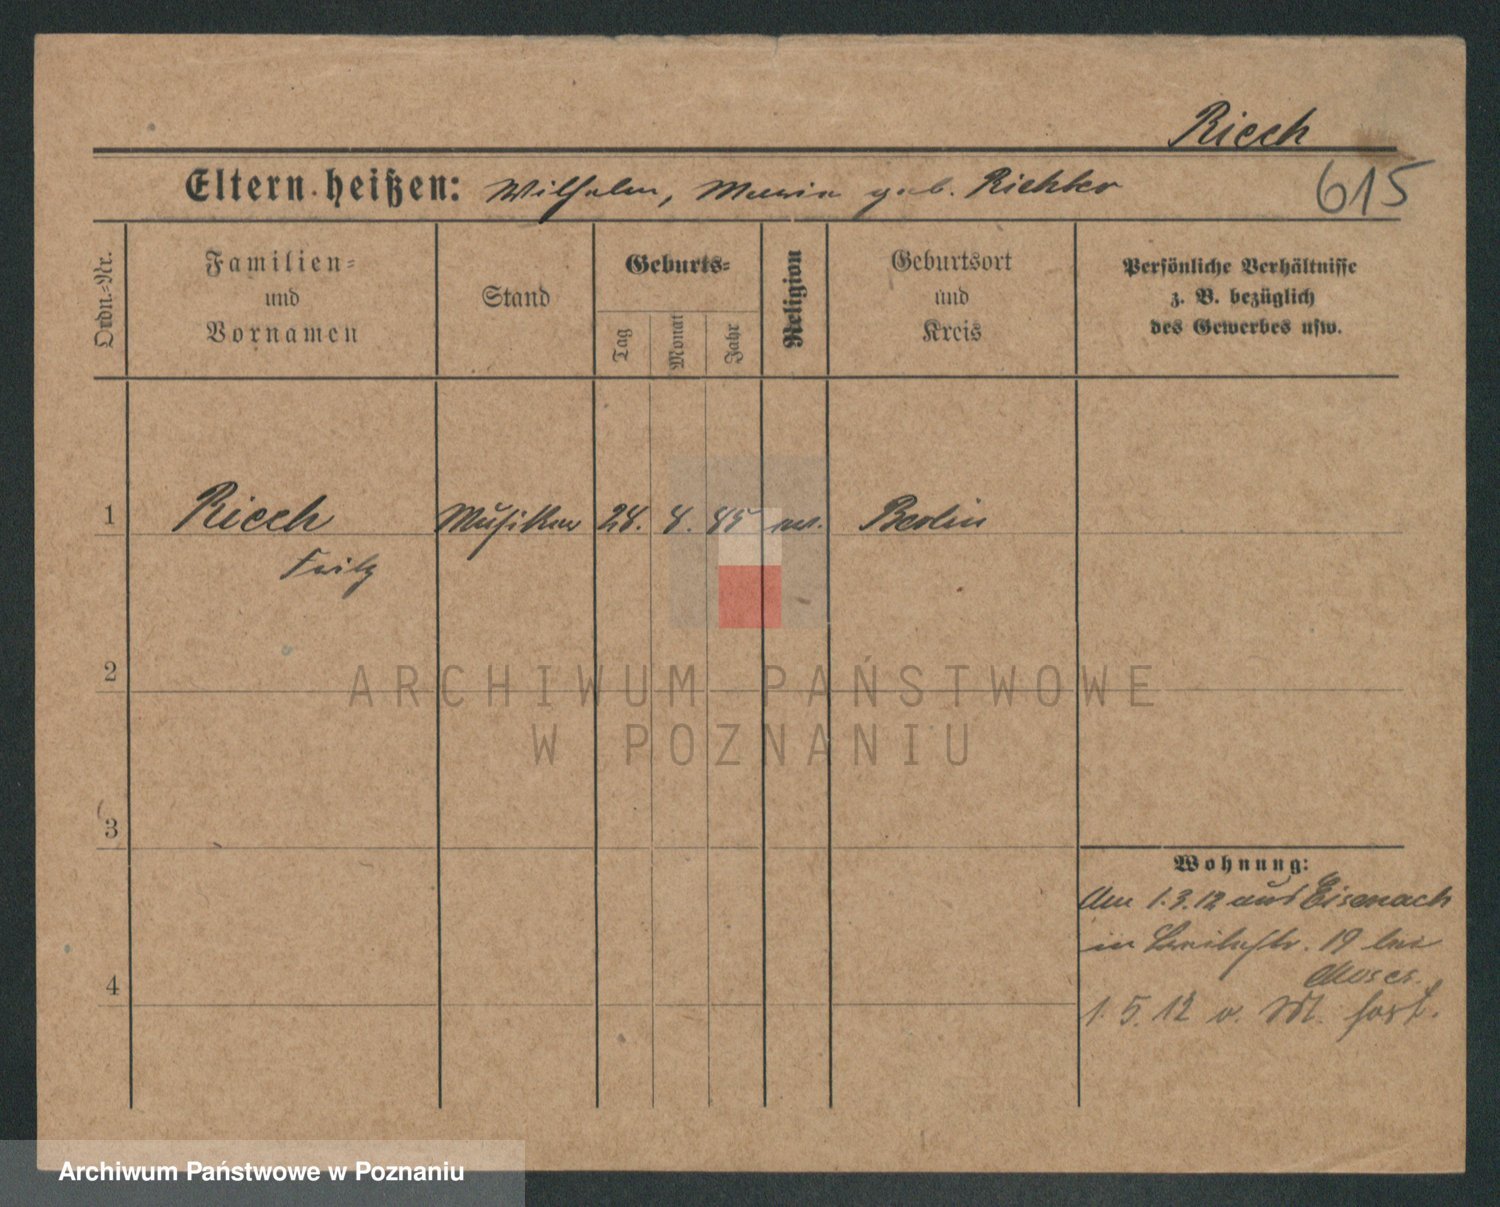 Riech
615
Eltern heißen: Wilhelm, Maria geb. Richter
Ordn.-Nr.
Familien-
und
Vornamen
Stand
Geburts-
Tag
Monat
Jahr
Religion
Geburtsort
und
Kreis
Persönliche Verhältnisse
z. B. bezüglich
des Gewerbes usw.
1 Riech Musiker 24. 4. 85 ev. Berlin
Fritz
2
ARCHIWUM PAŃSTWOWE
W POZNANIU
3
Wohnung:
Am 1.3.12 aus Eisenach
in 19 bei
Moses.
4
1.5.12 v. M. fort.
Archiwum Państwowe w Poznaniu